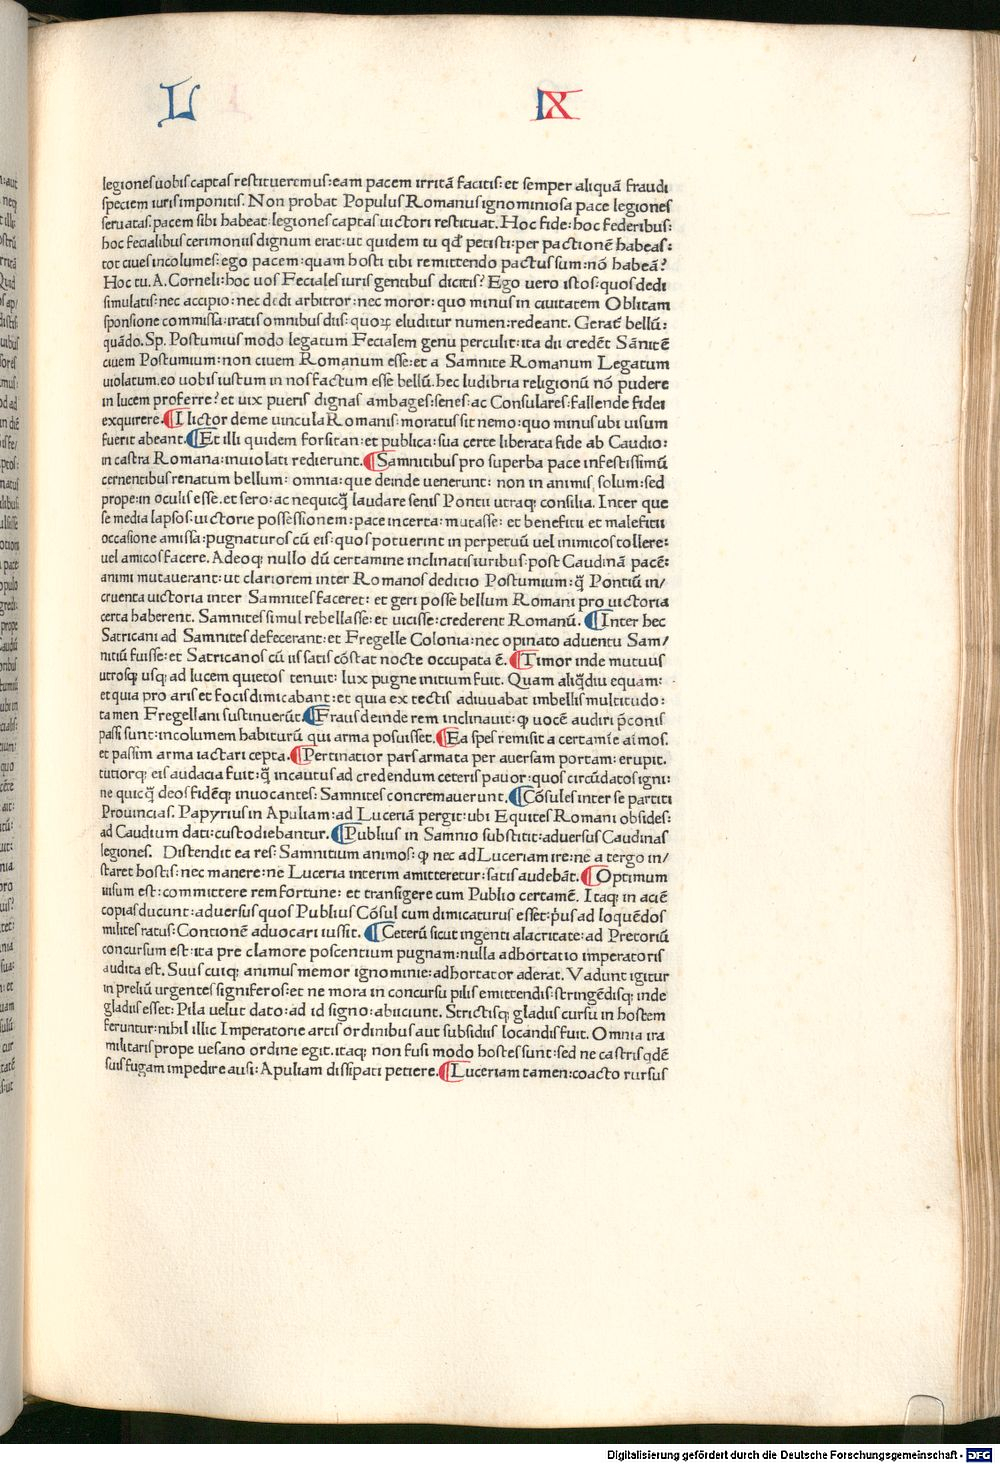 L IX
legiones uobis captas restitueremus: eam pacem irritā facitis: et semper aliquā fraudi
speciem iuris imponitis. Non probat Populus Romanus ignominiosa pace legiones
seruatas. pacem sibi habeat: legiones captas uictori restituat. Hoc fide: hoc federibus:
hoc fecialibus cerimoniis dignum erat: ut quidem tu qđ petisti: per pactionē habeas:
tot ciues incolumes: ego pacem: quam hosti tibi remittendo pactus sum: nō habeā?
Hoc tu. A. Corneli: hoc uos Feciales iuris gentibus dicitis? Ego uero istos: quos dedi
simulatis: nec accipio: nec dedi arbitror: nec moror: quo minus in ciuitatem Oblitam
sponsione commissa: iratis omnibus diis: quoꝝ eluditur numen: redeant. Gerat̄ bellū:
quādo. Sp. Postumius modo legatum Fecialem genu perculit: ita dii credēt Sānitē
ciuem Postumium: non ciuem Romanum esse: et a Samnite Romanum Legatum
uiolatum. eo uobis iustum in nos factum esse bellū. hec ludibria religionū nō pudere
in lucem proferre? et uix pueris dignas ambages: senes: ac Consulares: fallende fidei
exquirere. ¶I lictor deme uincula Romanis: moratus sit nemo: quo minus ubi uisum
fuerit abeant. ¶Et illi quidem forsitan: et publica: sua certe liberata fide ab Caudio:
in castra Romana: inuiolati redierunt. ¶Samnitibus pro superba pace infestissimū
cernentibus renatum bellum: omnia: que deinde uenerunt: non in animis solum: sed
prope: in oculis esse. et sero: ac nequicq̄ laudare senis Pontii utraqꝫ consilia. Inter que
se media lapsos: uictorie possessionem: pace incerta: mutasse: et beneficii et maleficii
occasione amissa: pugnaturos cū eis: quos potuerint in perpetuū uel inimicos tollere:
uel amicos facere. Adeoqꝫ nullo dū certamine inclinatis uiribus: post Caudinā pacē:
animi mutauerant: ut clariorem inter Romanos deditio Postumium: q̄ Pontiū in/
cruenta uictoria inter Samnites faceret: et geri posse bellum Romani pro uictoria
certa haberent. Samnites simul rebellasse: et uicisse: crederent Romanū. ¶Inter hec
Satricani ad Samnites defecerant: et Fregelle Colonia: nec opinato aduentu Sam/
nitiū fuisse: et Satricanos cū iis satis cōstat nocte occupata ē. ¶Timor inde mutuus
utrosqꝫ usqꝫ ad lucem quietos tenuit: lux pugne initium fuit. Quam aliq̄diu equam:
et quia pro aris et focis dimicabant: et quia ex tectis adiuuabat imbellis multitudo:
tamen Fregellani sustinuerūt. ¶Fraus deinde rem inclinauit: ꝙ uocē audiri p̄conis
passi sunt: incolumem habiturū qui arma posuisset. ¶Ea spes remisit a certamīe aīmos.
et passim arma iactari cepta. ¶Pertinatior pars armata per auersam portam: erupit.
tutiorqꝫ eis audacia fuit: q̄ incautus ad credendum ceteris pauor: quos circūdatos igni:
ne quicq̄ deos fidēqꝫ inuocantes: Samnites concremauerunt. ¶Cōsules inter se partiti
Prouincias. Papyrius in Apuliam: ad Luceriā pergit: ubi Equites Romani obsides:
ad Caudium dati: custodiebantur. ¶Publius in Samnio substitit: aduersus Caudinas
legiones. Distendit ea res: Samnitium animos: ꝙ nec ad Luceriam ire: ne a tergo in/
staret hostis: nec manere: ne Luceria interim amitteretur: satis audebāt. ¶Optimum
uisum est: committere rem fortune: et transigere cum Publio certamē. Itaqꝫ in aciē
copias ducunt: aduersus quos Publius Cōsul cum dimicaturus esset: p̄us ad loquēdos
milites ratus: Contionē aduocari iussit. ¶Ceterū sicut ingenti alacritate: ad Pretoriū
concursum est: ita pre clamore poscentium pugnam: nulla adhortatio imperatoris
audita est. Suus cuiqꝫ animus memor ignominie: adhortator aderat. Vadunt igitur
in preliū urgentes signiferos: et ne mora in concursu pilis emittendis: stringēdisqꝫ inde
gladiis esset: Pila uelut dato: ad id signo: abiiciunt. Strictisqꝫ gladiis cursu in hostem
feruntur: nihil illic Imperatorie artis ordinibus aut subsidiis locandis fuit. Omnia ira
militaris prope uesano ordine egit. itaqꝫ non fusi modo hostes sunt: sed ne castris qdē
suis fugam impedire ausi: Apuliam dissipati petiere. ¶Luceriam tamen: coacto rursus
Digitalisierung gefördert durch die Deutsche Forschungsgemeinschaft - DFG